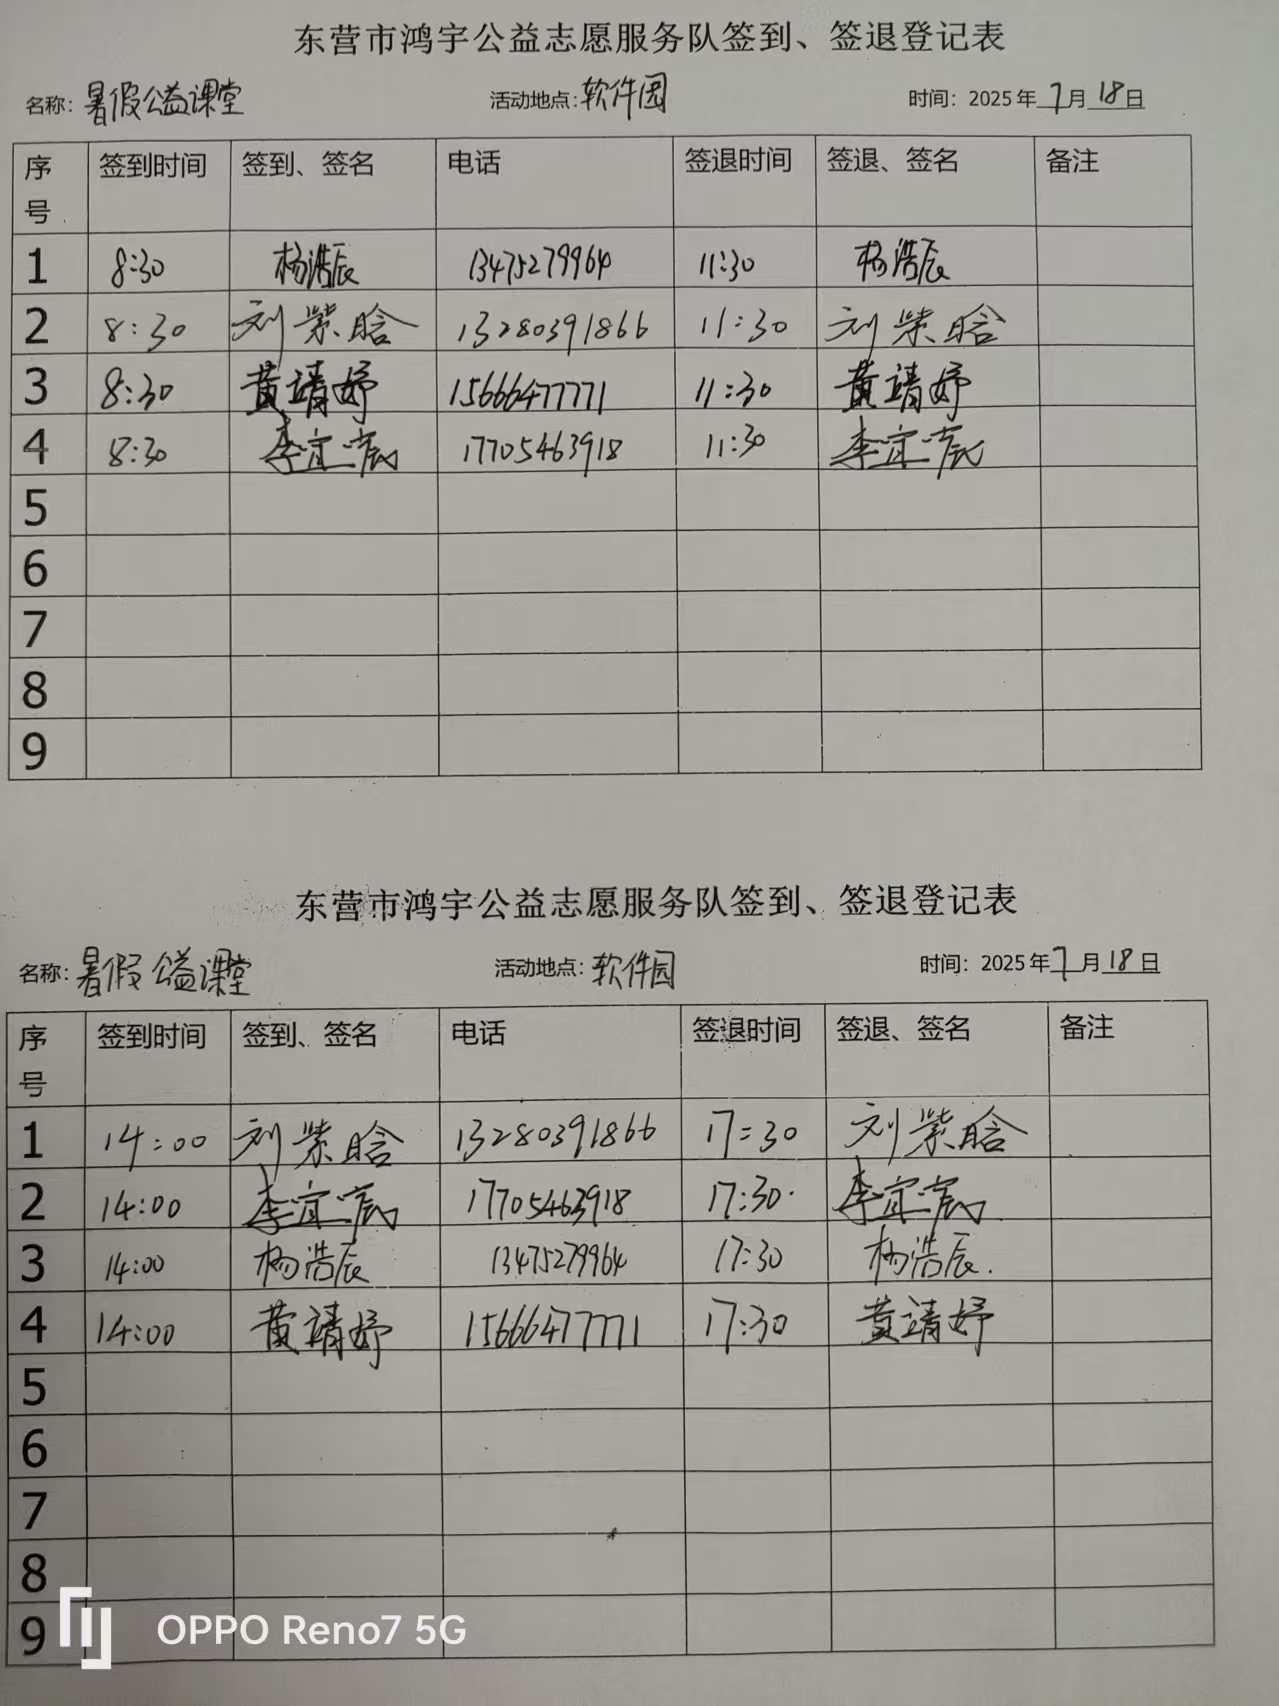 东营市鸿宇公益志愿服务队签到、签退登记表
名称：暑假公益课堂 活动地点：软件园 时间：2025年7月18日
序号 签到时间 签到、签名 电话 签退时间 签退、签名 备注
1 8:30 杨浩辰 13475279964 11:30 杨浩辰
2 8:30 刘紫晗 13280391866 11:30 刘紫晗
3 8:30 黄靖妤 15666477771 11:30 黄靖妤
4 8:30 李宜宸 17705463918 11:30 李宜宸
5
6
7
8
9
东营市鸿宇公益志愿服务队签到、签退登记表
名称：暑假公益课堂 活动地点：软件园 时间：2025年7月18日
序号 签到时间 签到、签名 电话 签退时间 签退、签名 备注
1 14:00 刘紫晗 13280391866 17:30 刘紫晗
2 14:00 李宜宸 17705463918 17:30 李宜宸
3 14:00 杨浩辰 13475279964 17:30 杨浩辰
4 14:00 黄靖妤 15666477771 17:30 黄靖妤
5
6
7
8
9
OPPO Reno7 5G